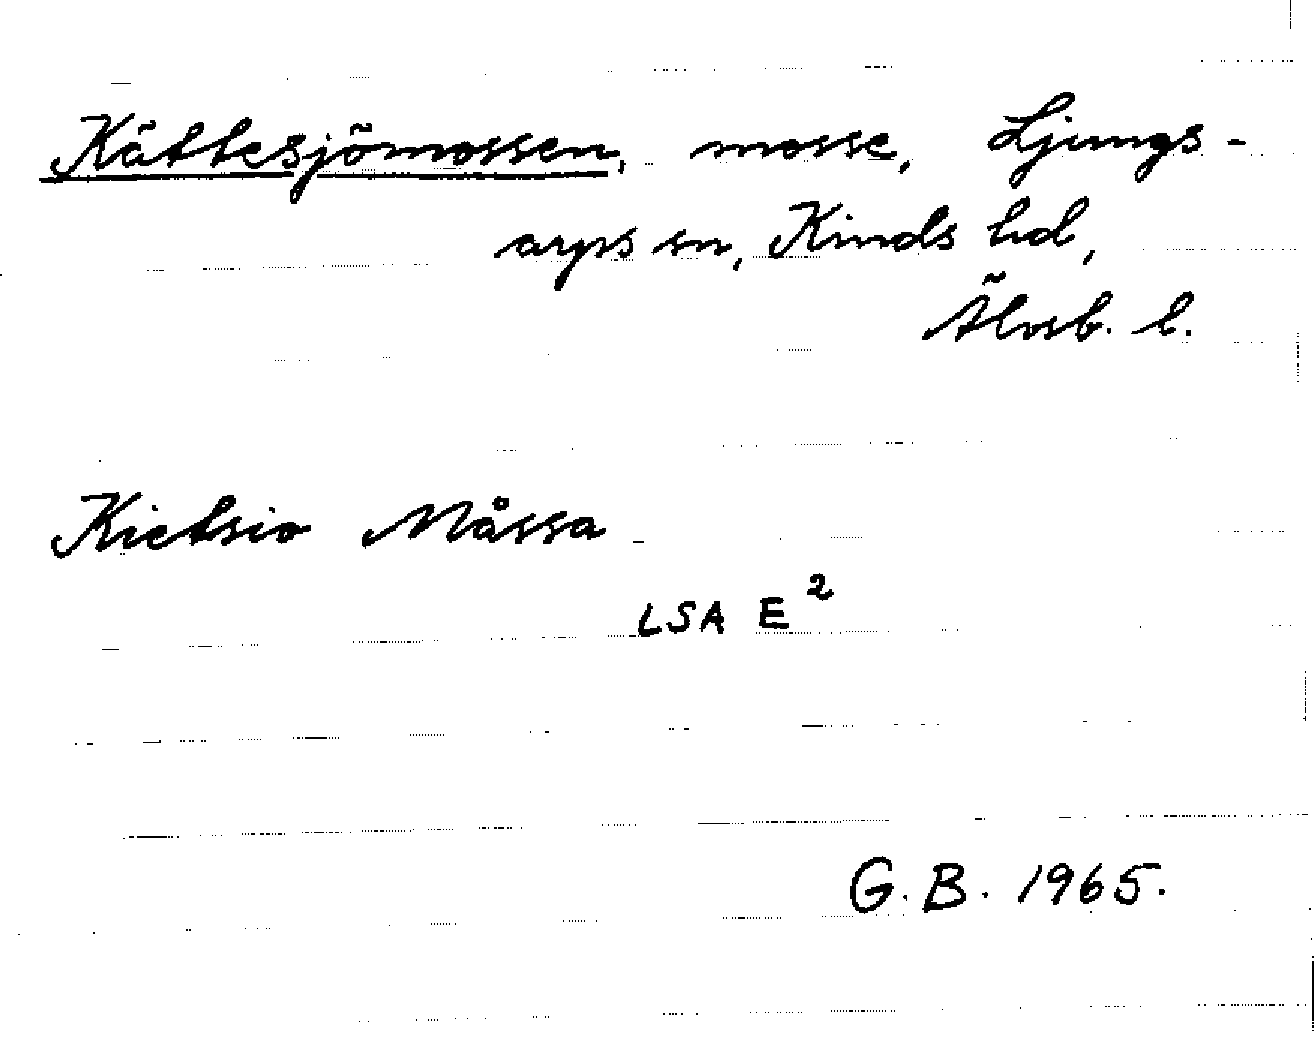 Kättesjömossen, mosse, Ljungs-
arps sn, Kinds hd,
Älvsb. l.
Kietsio Måssa
LSA E²
G. B. 1965.